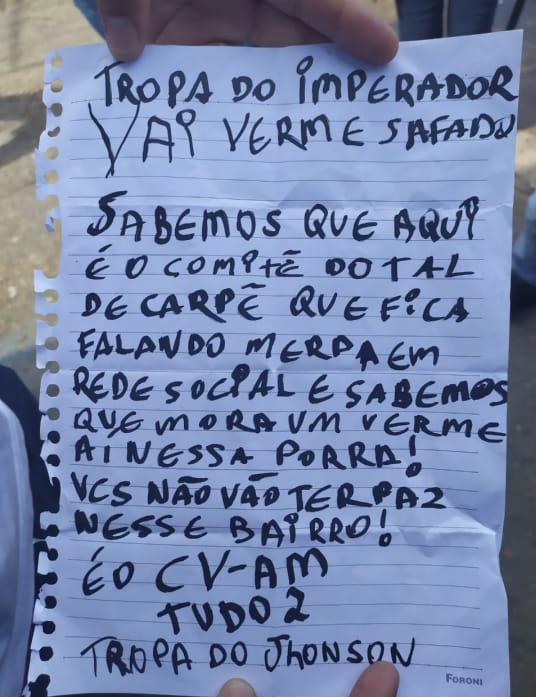 TROPA DO IMPERADOR
VAI VERME SAFADO
SABEMOS QUE AQUI
É O COMITÊ DO TAL
DE CARPÊ QUE FICA
FALANDO MERDA EM
REDE SOCIAL E SABEMOS
QUE MORA UM VERME
AI NESSA PORRA!
VCS NÃO VÃO TER PAZ
NESSE BAIRRO!
É O CV-AM
TUDO 2
TROPA DO JHONSON
FORONI